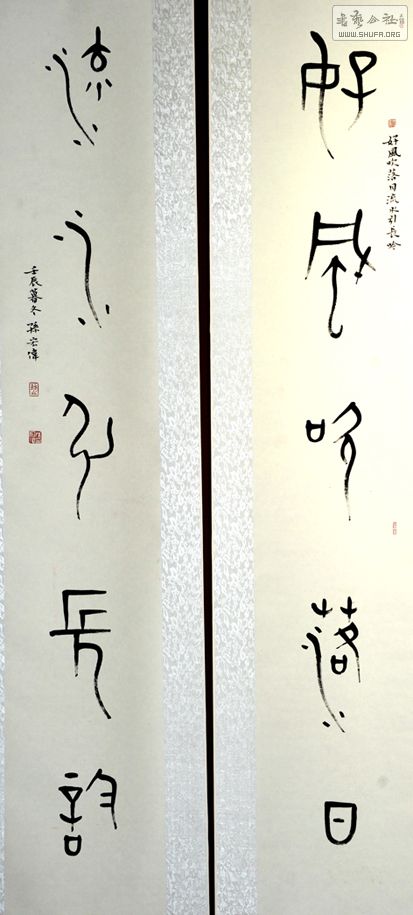 書藝公社
WWW.SHUFA.ORG
好風吹落日
好風吹落日流水引長吟
流水引長訡
壬辰暮冬孫宏偉